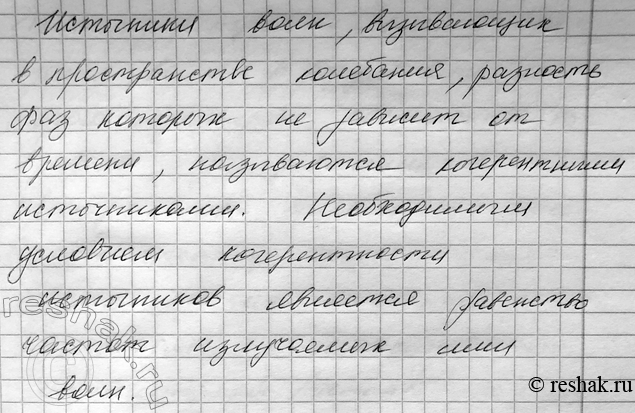 Источники волн, вызывающих
в пространстве колебания, разность
фаз которых не зависит от
времени, называются когерентными
источниками. Необходимым
условием когерентности
источников является равенство
частот излучаемых ими
волн.
reshak.ru
© reshak.ru